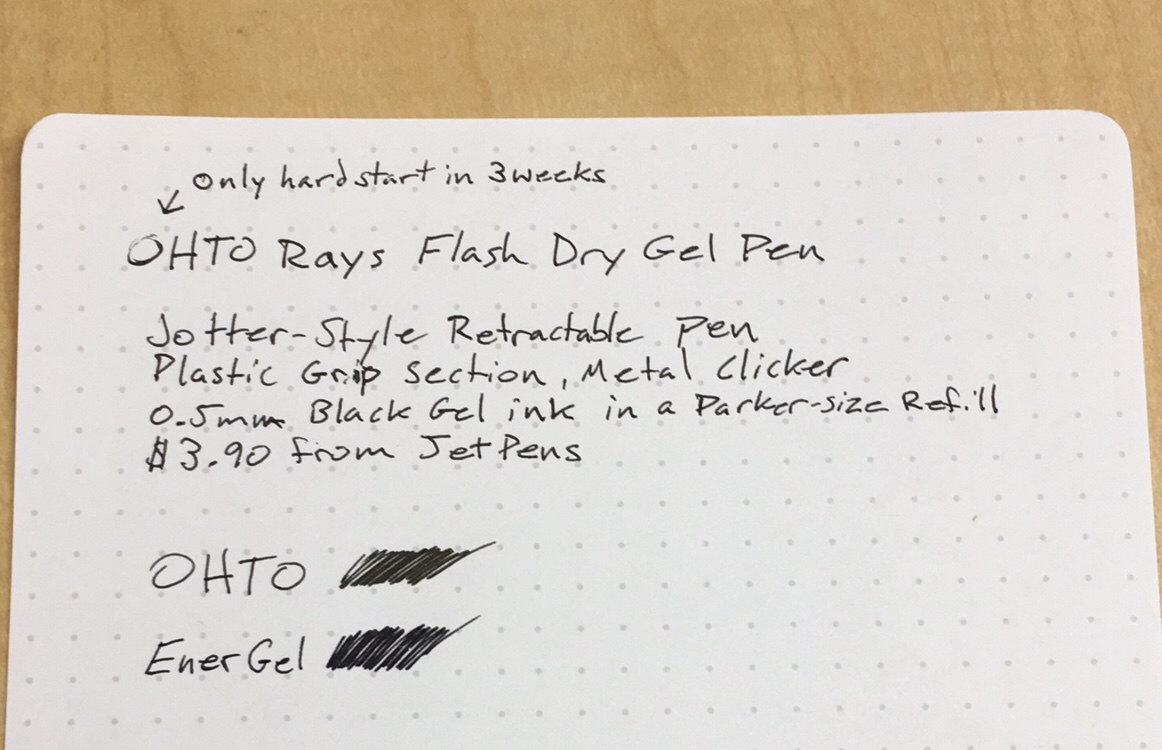 Only hard start in 3 weeks
OHTO Rays Flash Dry Gel Pen
Jotter-Style Retractable Pen
Plastic Grip Section, Metal Clicker
0.5mm Black Gel ink in a Parker-size Refill
$3.90 from JetPens
OHTO
EnerGel